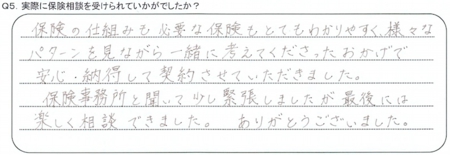 Q5. 実際に保険相談を受けられていかがでしたか？
保険の仕組みも必要な保険もとてもわかりやすく、様々な
パターンを見ながら一緒に考えてくださったおかげで
安心・納得して契約させていただきました。
保険事務所と聞いて少し緊張しましたが最後には
楽しく相談できました。 ありがとうございました。